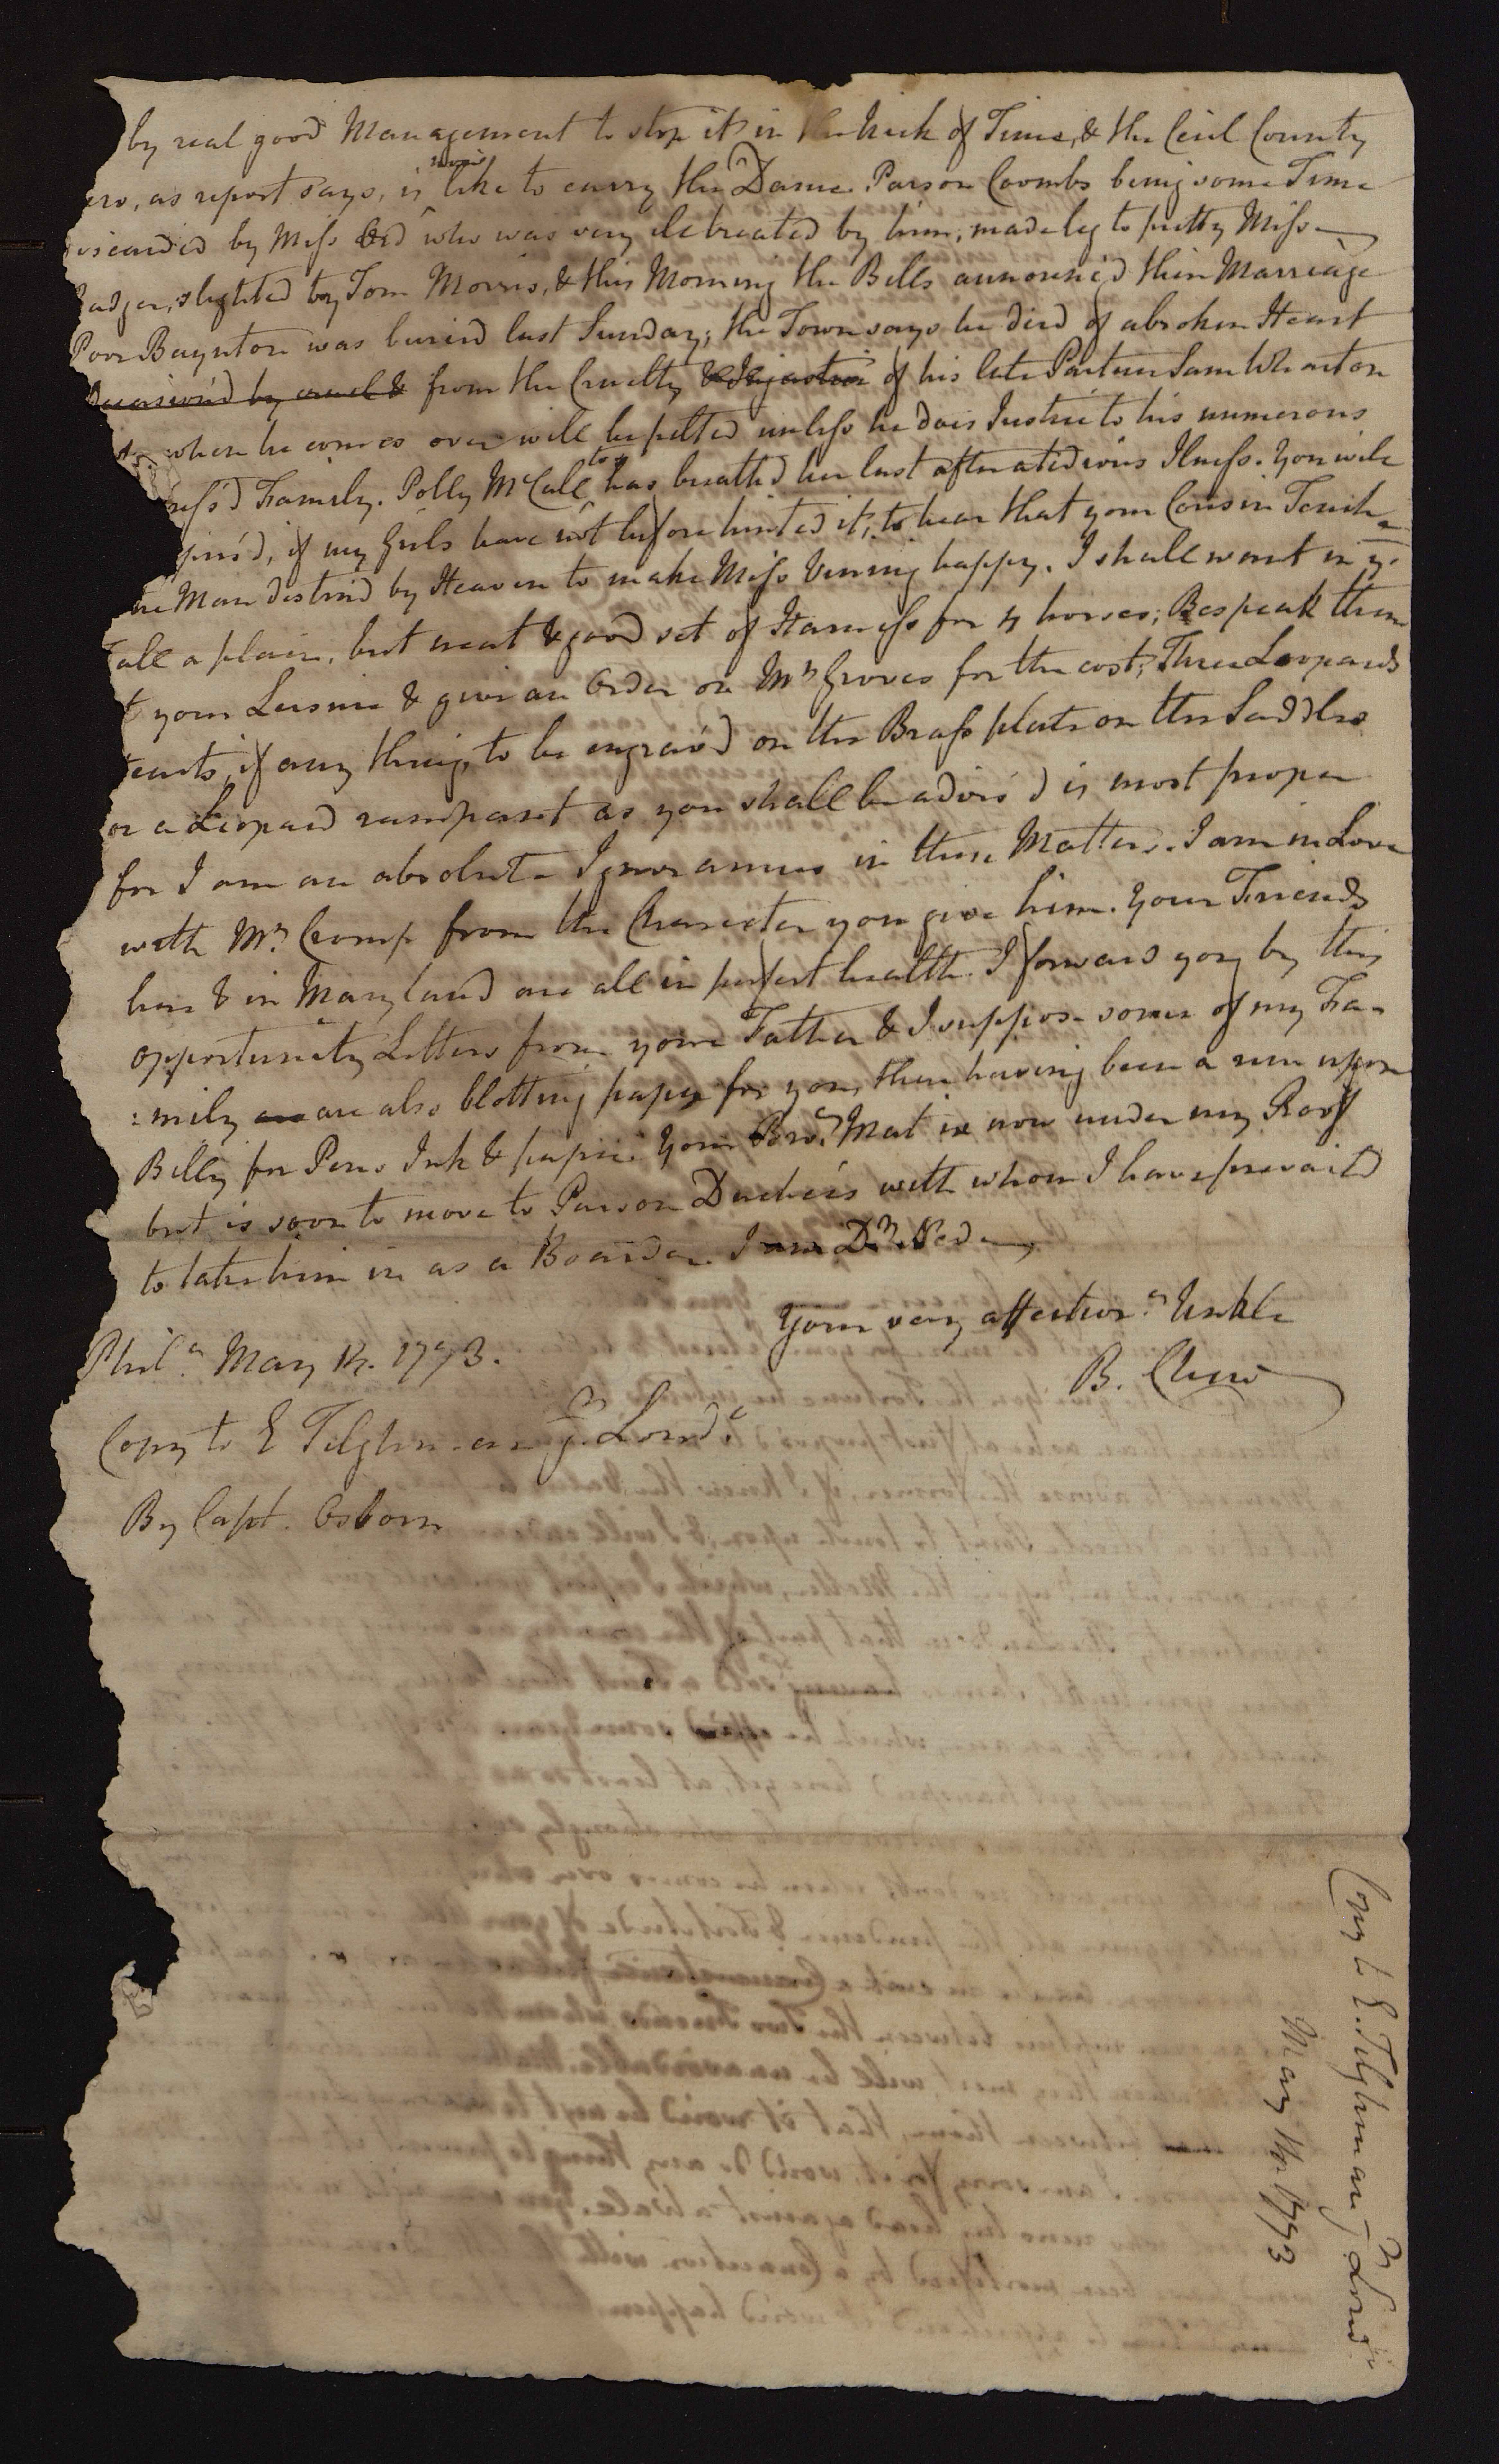 by real good Management to stop it in the Nick of Time, & the Cecil County
ero, as report says, is like to carry the Dame. Parson Coombs being some Time
iscarded by Miss who was very ill treated by him, made leg to pretty Miss
adger, slighted by Tom Morris, & this Morning the Bells announc'd their Marriage
Poor Baynton was buried last Sunday; the Town says he died of a broken Heart
Occasion'd by cruel & from the Cruelty & Injustice of his late Partner Sam Wharton
when he comes over will be pelted unless he does Justice to his numerous
ress'd Family. Polly McCall too has breath'd her last after a tedious Illness. You will
priz'd, if my Girls have not before hinted it, to hear that your Cousin Tench
he Man destin'd by Heaven to make Miss Vining happy. I shall want in ye
Fall a plain, but neat & good set of Harness for 4 horses; Bespeak them
t your Leisure & give an Order on Mr Groves for the cost; Three Leopards
eads, if any thing, to be engrav'd on the Brass plate on the Saddles
or a Leopard rampant as you shall be advis'd is most proper
for I am an absolute Ignoramus in these Matters. I am in Love
with Mr Cromp from the Character you give him. Your Friends
here & in Maryland are all in perfect health. I forward you by this
opportunity Letters from your Father & I suppose some of my Fa-
:mily are also blotting paper for you, there having been a run upon
Billy for Pens Ink & paper. Your Bror Mat is now under my Roof
but is soon to move to Parson Duche's with whom I have prevail'd
to take him in as a Boarder. I am Dr Neddy
Your very affectionte Unkle
B. Chew
Phila May 14. 1773.
Copy to E Tilghman jr Lond.
By Capt. Osborn
Copy to E. Tilghman jr Lond.
May 14. 1773